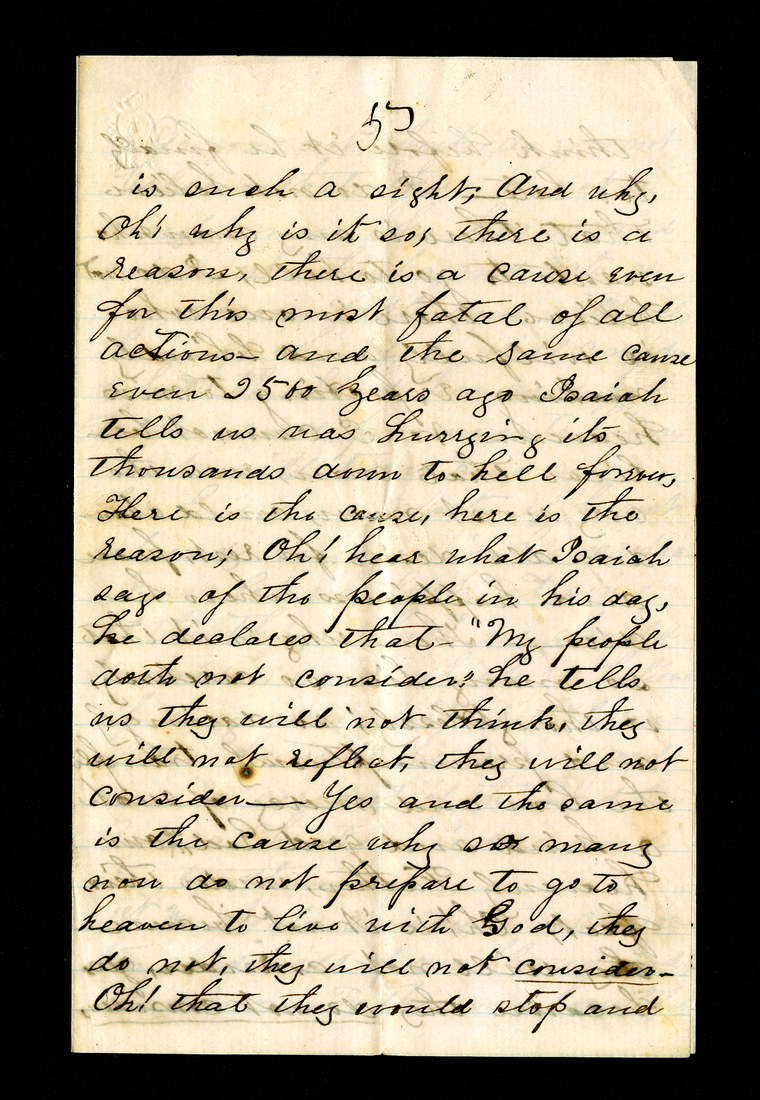 5
is such a sight; And why,
Oh! why is it so, there is a
reason, there is a cause even
for this most fatal of all
actions— and the same cause
even 2500 years ago Isaiah
tells us was hurrying its
thousands down to hell forever,
Here is the cause, here is the
reason; Oh! hear what Isaiah
says of the people in his day,
he declares that- "My people
doth not consider." he tells
us they will not think, they
will not reflect, they will not
consider— Yes and the same
is the cause why so many
now do not prepare to go to
heaven to live with God, they
do not, they will not consider-
Oh! that they would stop and